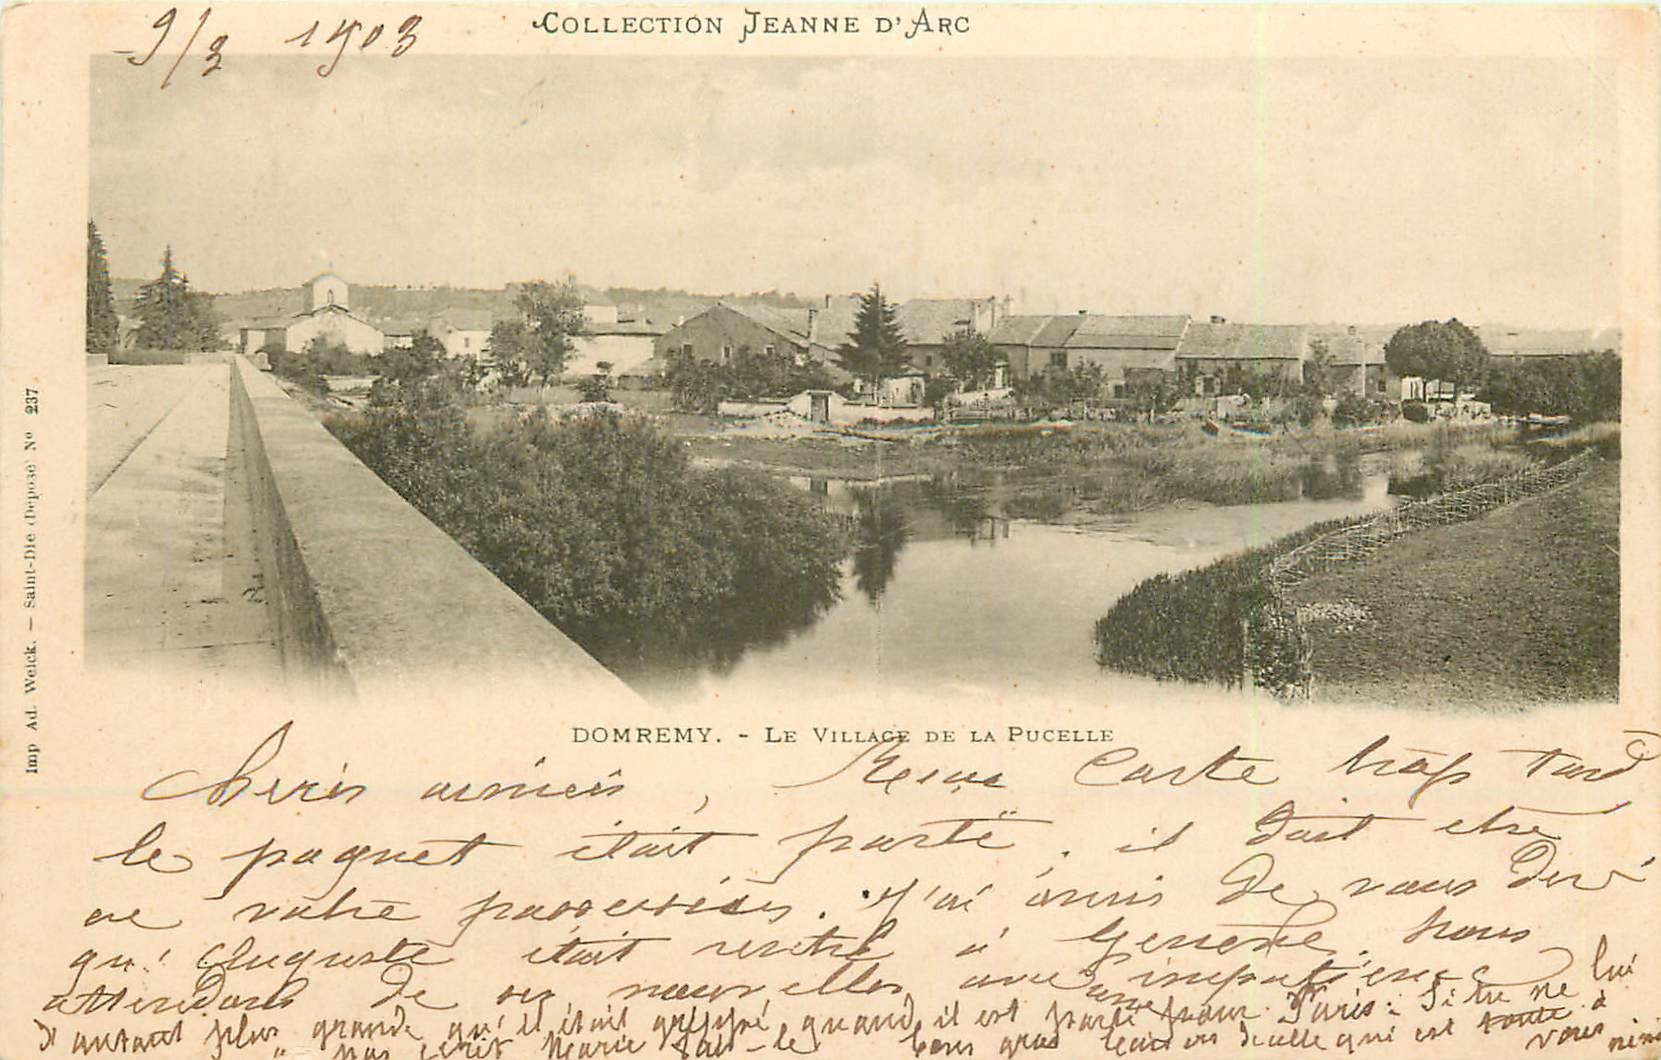 9/3 1903
COLLECTION JEANNE D'ARC
Imp Ad. Weick. — Saint-Dié (Déposé) Nº 237
DOMREMY. - LE VILLAGE DE LA PUCELLE
Chers amies, Reçus Carte trop Tard
le paquet était parti, il doit être
en votre possession. J'ai omis de vous dire
qu'Auguste était rentré à Genève. Nous
attendons de ses nouvelles avec impatience
d'autant plus grande qu'il était grippé quand il est parti pour Paris. Si tu ne lui
pas écris Marie fais-le bons gros baisers de celle qui est toute à
vous